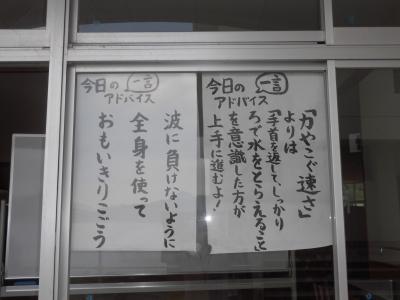 今日の
一言
アドバイス
「かやこぐ速さ」
よりは
「手首を返して、しっかり
ろで水をとらえること」
を意識した方が
上手に進むよ!
今日の
一言
アドバイス
波に負けないように
全身を使って
おもいきりこごう